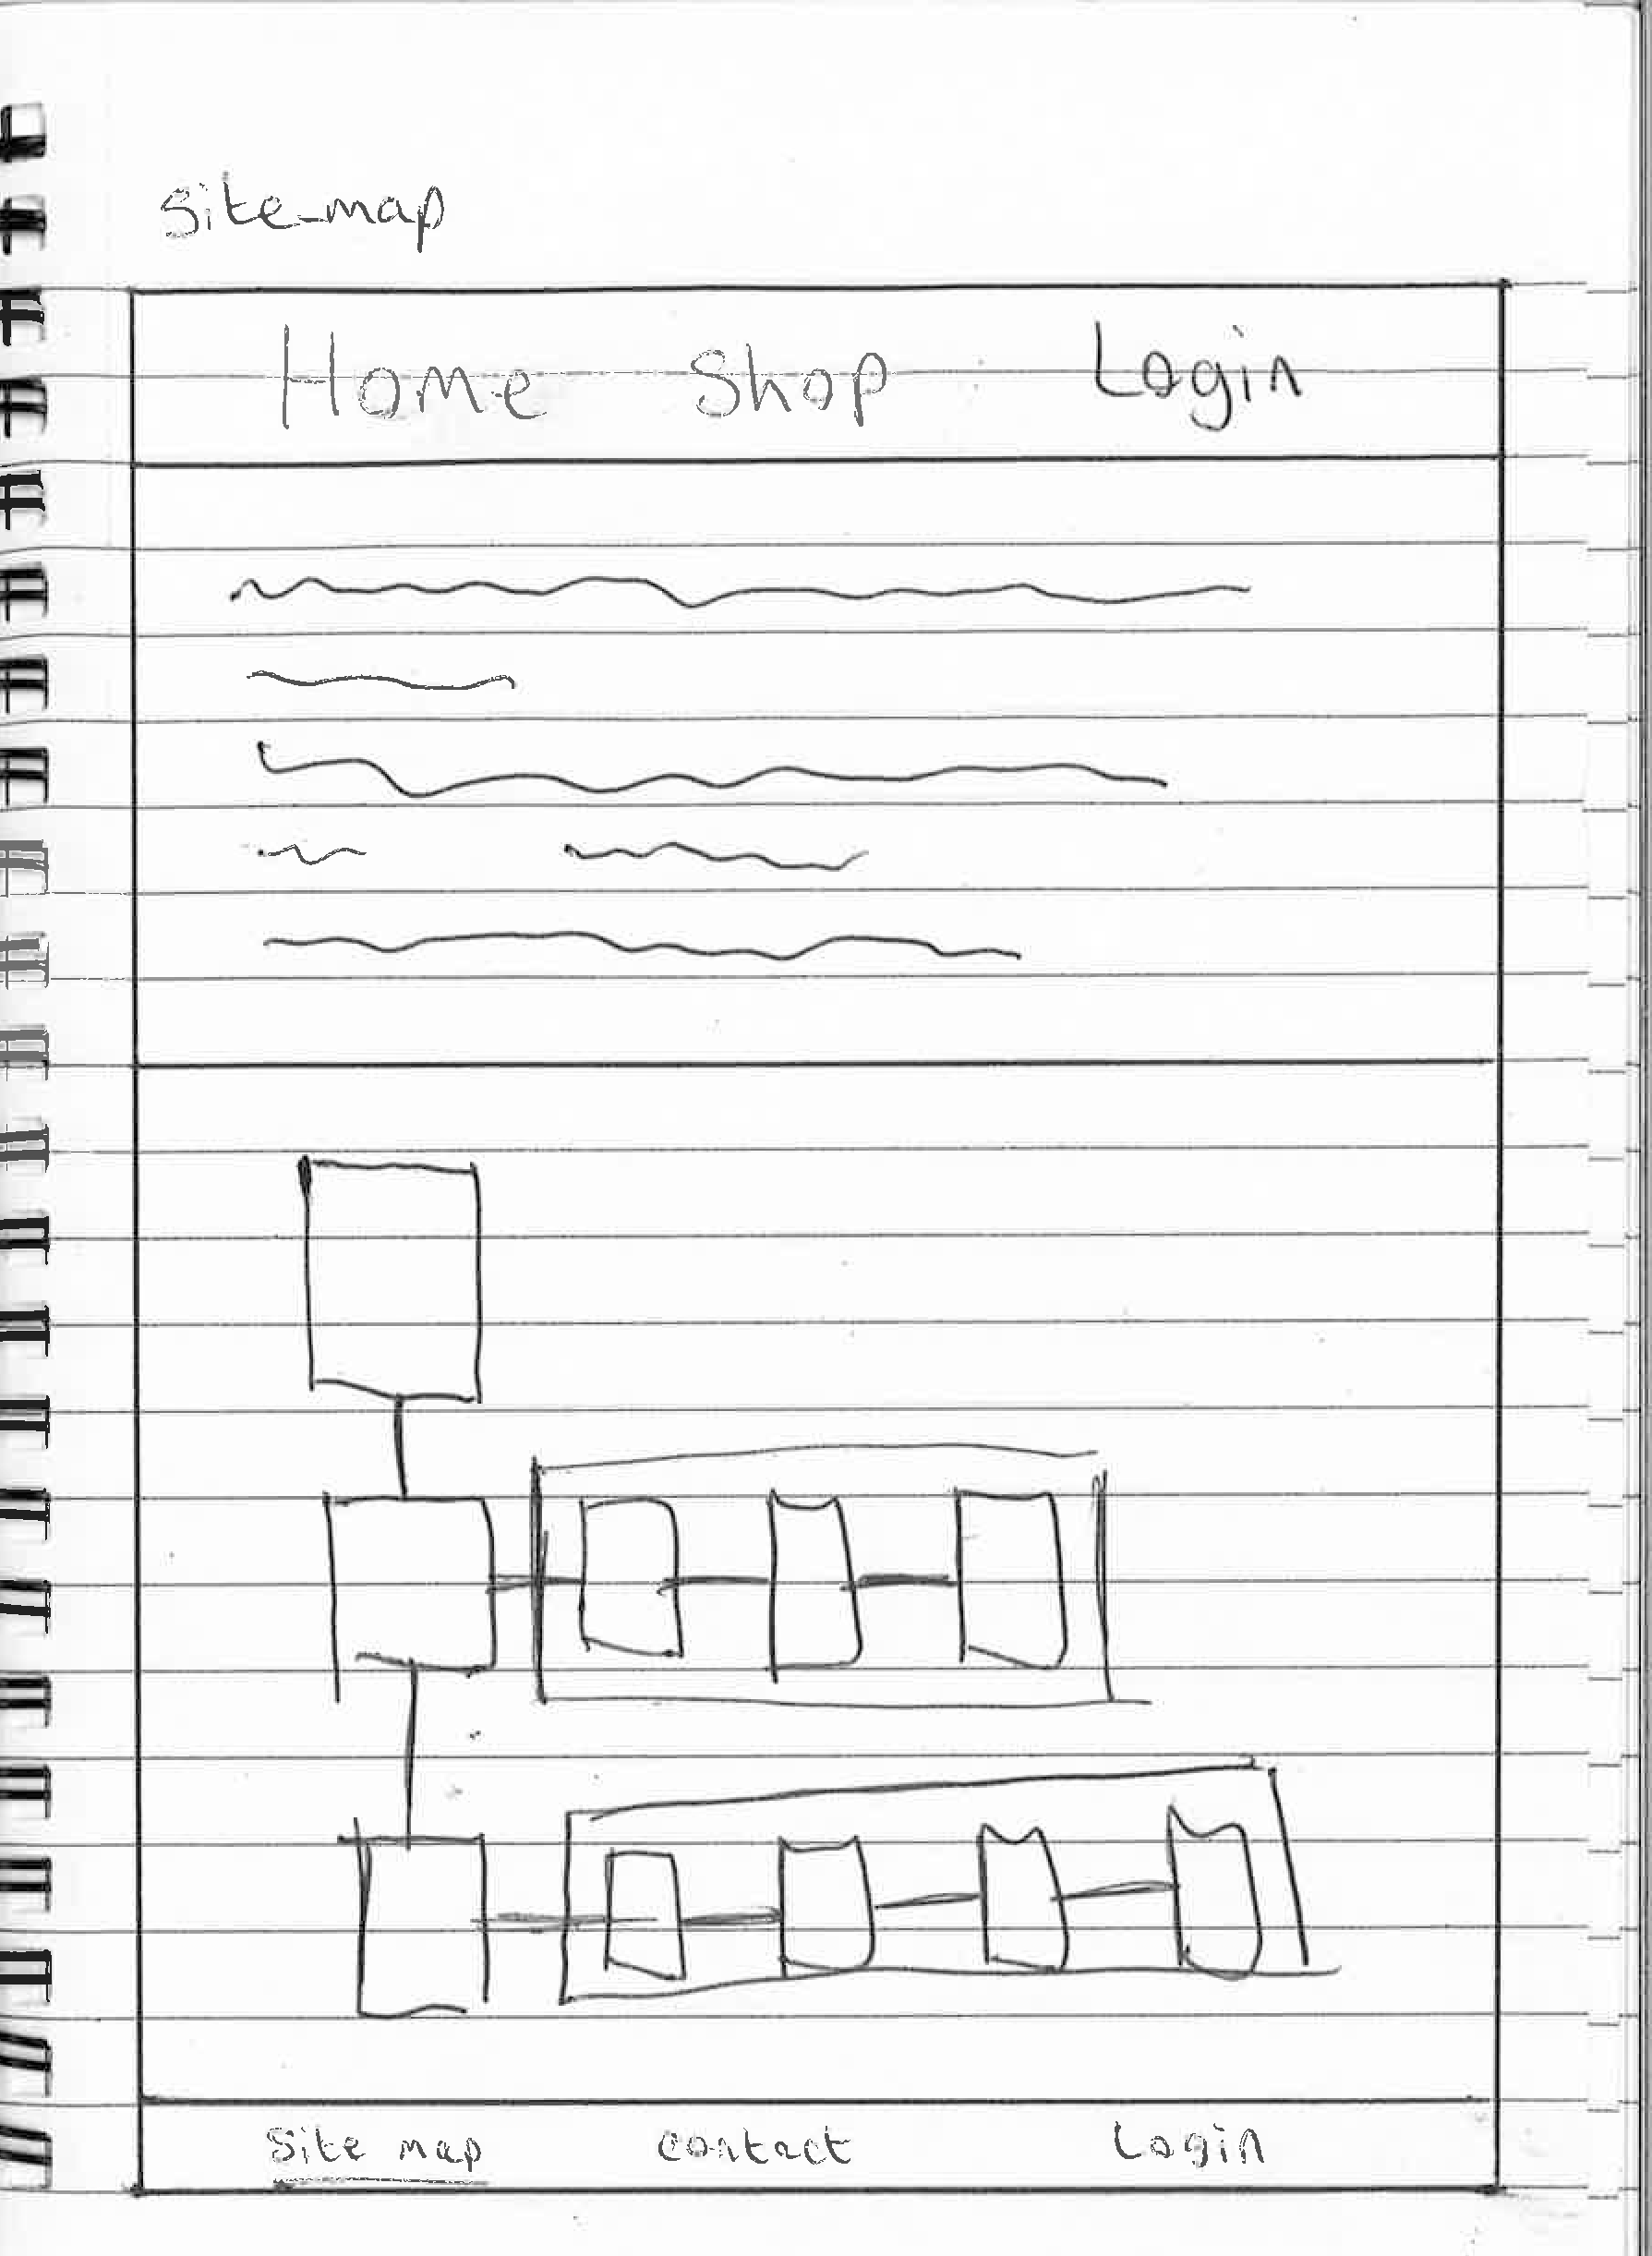 Site-map
Home Shop Login
Site map contact Login